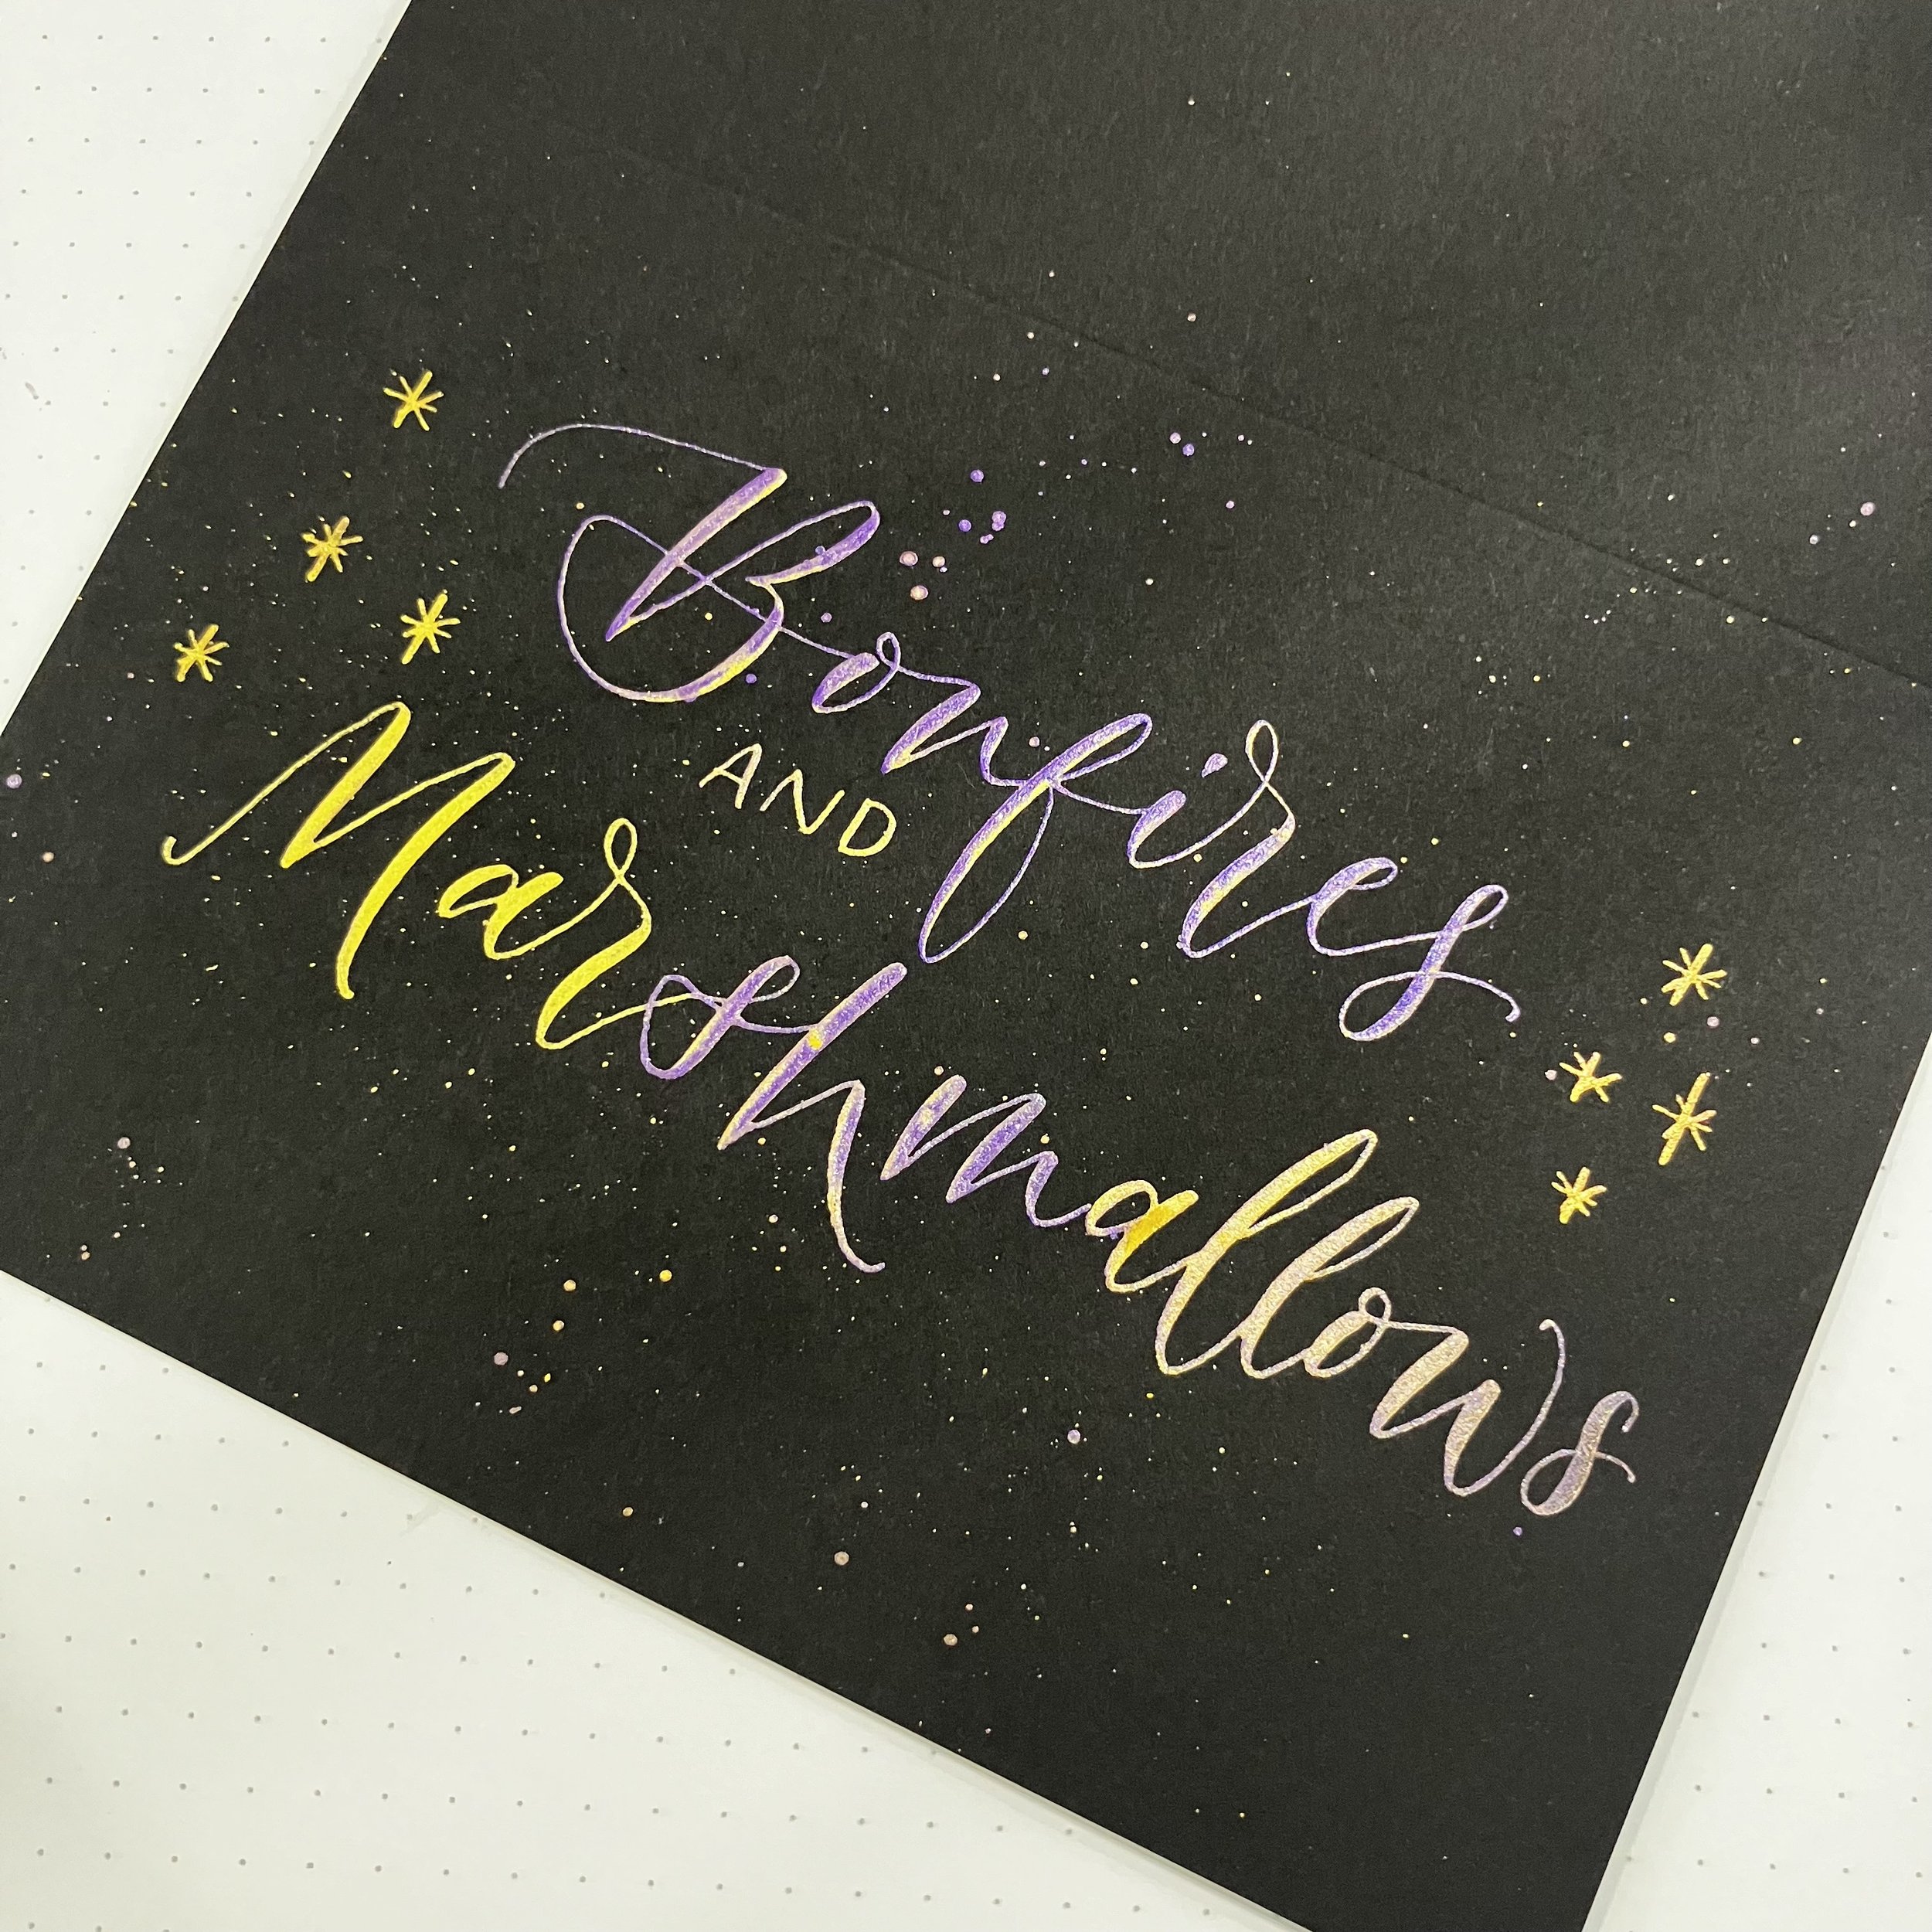 Bonfires
AND
Marshmallows